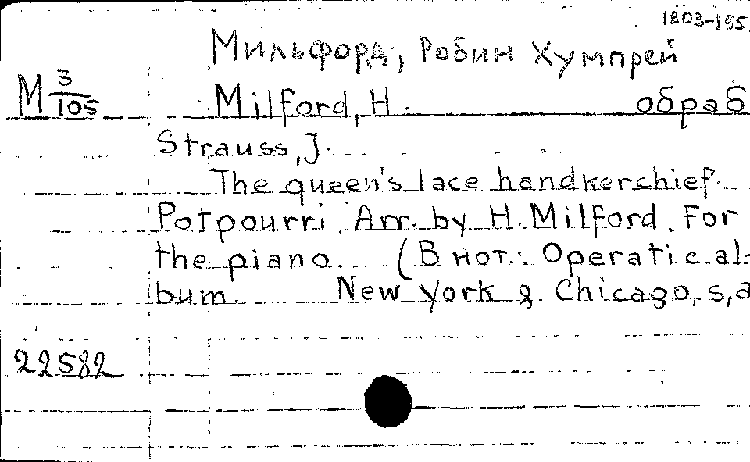 1803-155
Мильфорд, Робин Хумпрей
М 3/105
Milford, H. обраб
Strauss, J.
The queen's lace handkerchief.
Potpourri. Arr. by H. Milford. For
the piano. (В нот.: Operatic al-
bum. New York & Chicago, s, a
22582